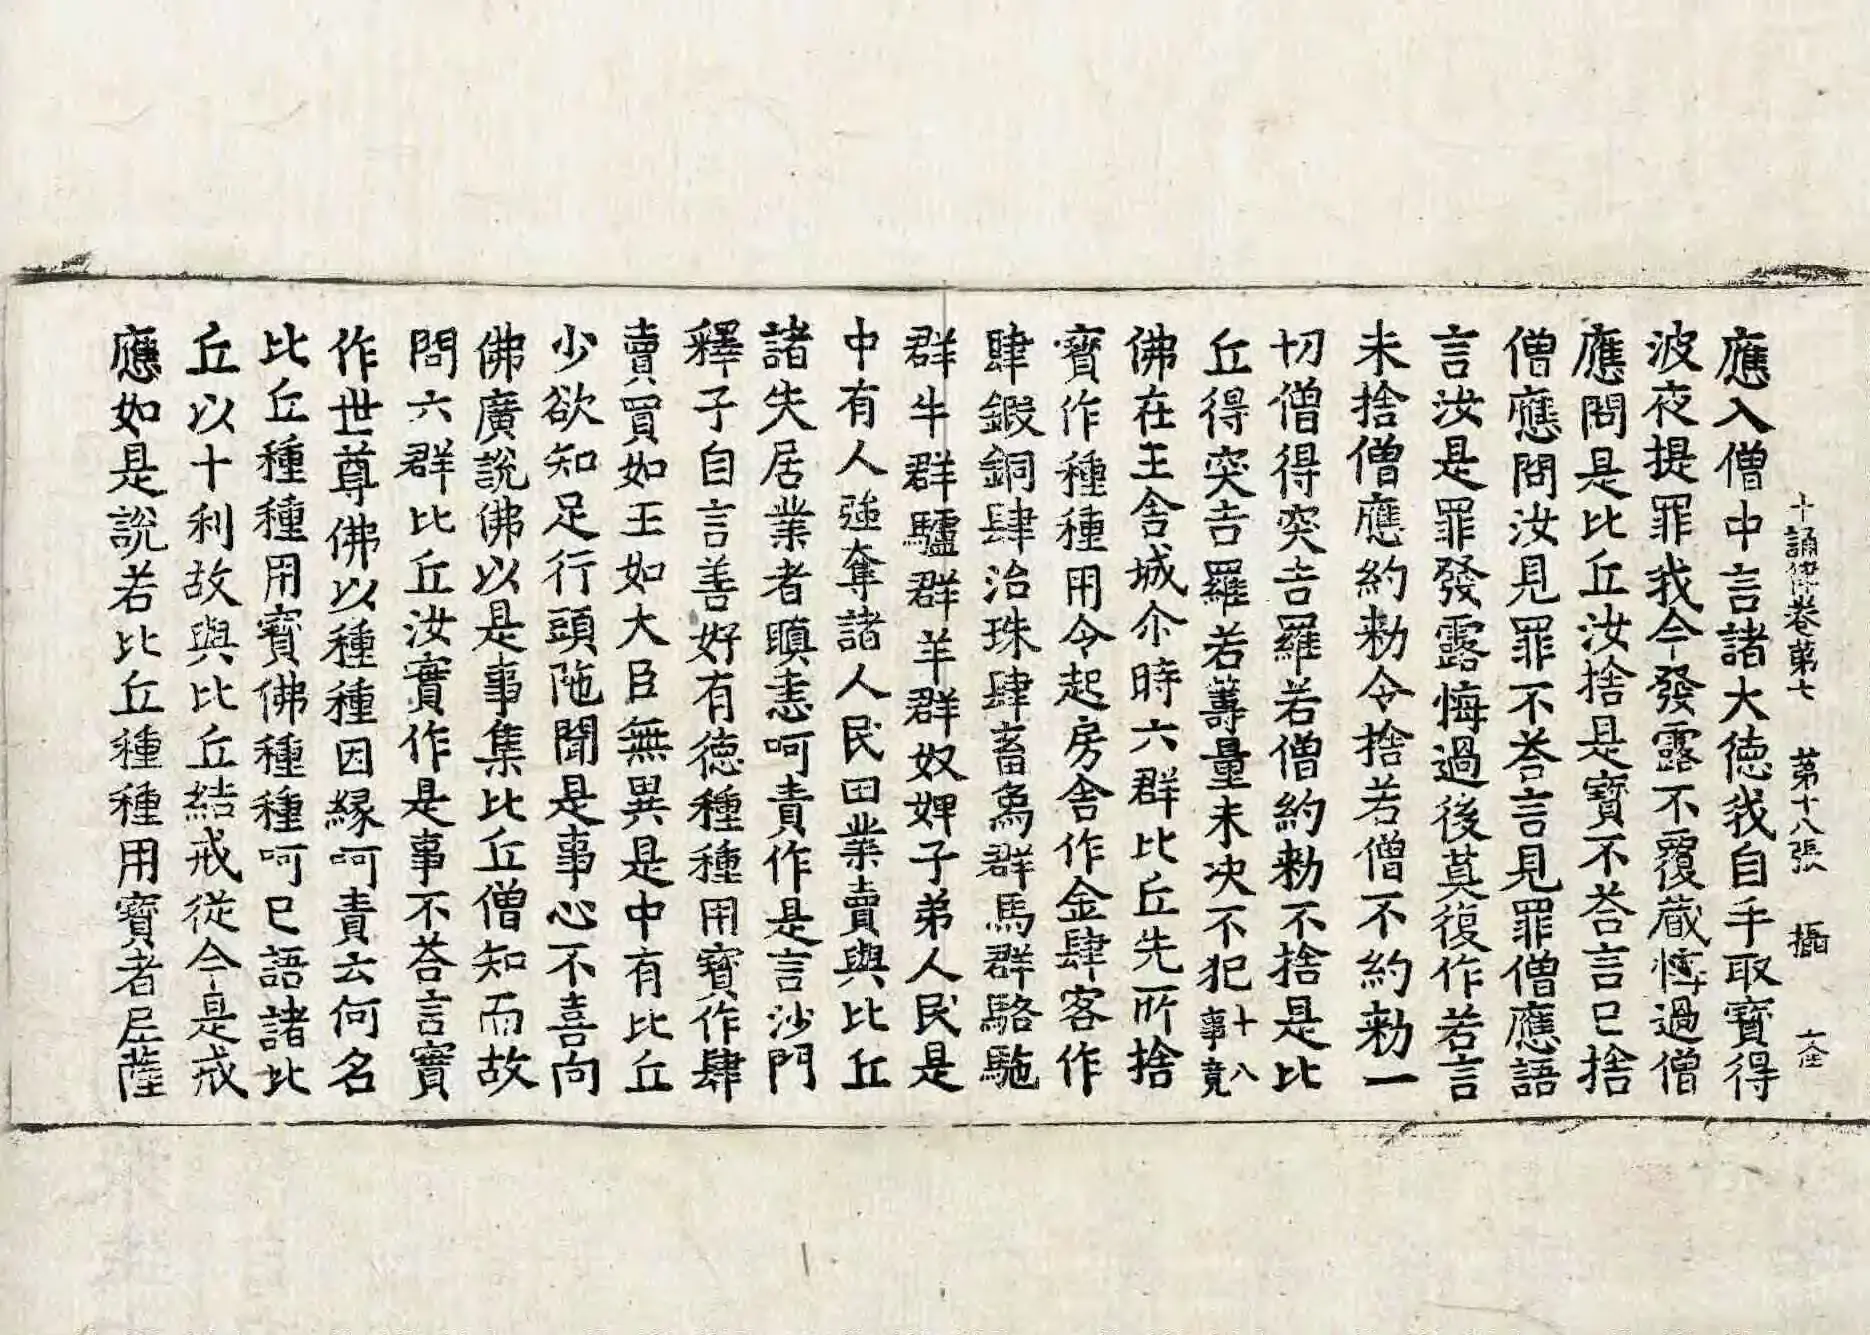 十誦律卷第七　第十八張　攝
應入僧中言諸大德我自手取寶得
波夜提罪我今發露不覆藏悔過僧
應問是比丘汝捨是寶不荅言已捨
僧應問汝見罪不荅言見罪僧應語
言汝是罪發露悔過後莫復作若言
未捨僧應約勑令捨若僧不約勑一
切僧得突吉羅若僧約勑不捨是比
丘得突吉羅若籌量未决不犯十八事竟
佛在王舍城尒時六群比丘先所捨
寶作種種用令起房舍作金肆客作
肆鍛銅肆治珠肆畜烏群馬群駱駞
群牛群驢群羊群奴婢子弟人民是
中有人強奪諸人民田業賣與比丘
諸失居業者瞋恚呵責作是言沙門
釋子自言善好有德種種用寶作肆
賣買如王如大臣無異是中有比丘
少欲知足行頭陁聞是事心不喜向
佛廣說佛以是事集比丘僧知而故
問六群比丘汝實作是事不荅言實
作世尊佛以種種因緣呵責云何名
比丘種種用寶佛種種呵已語諸比
丘以十利故與比丘結戒從今是戒
應如是說若比丘種種用寶者尼薩